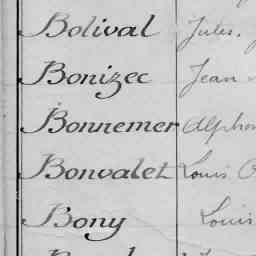 Bolival Jules.
Bonizec Jean
Bonnemer Alphon
Bonvalet Louis
Bony Louis